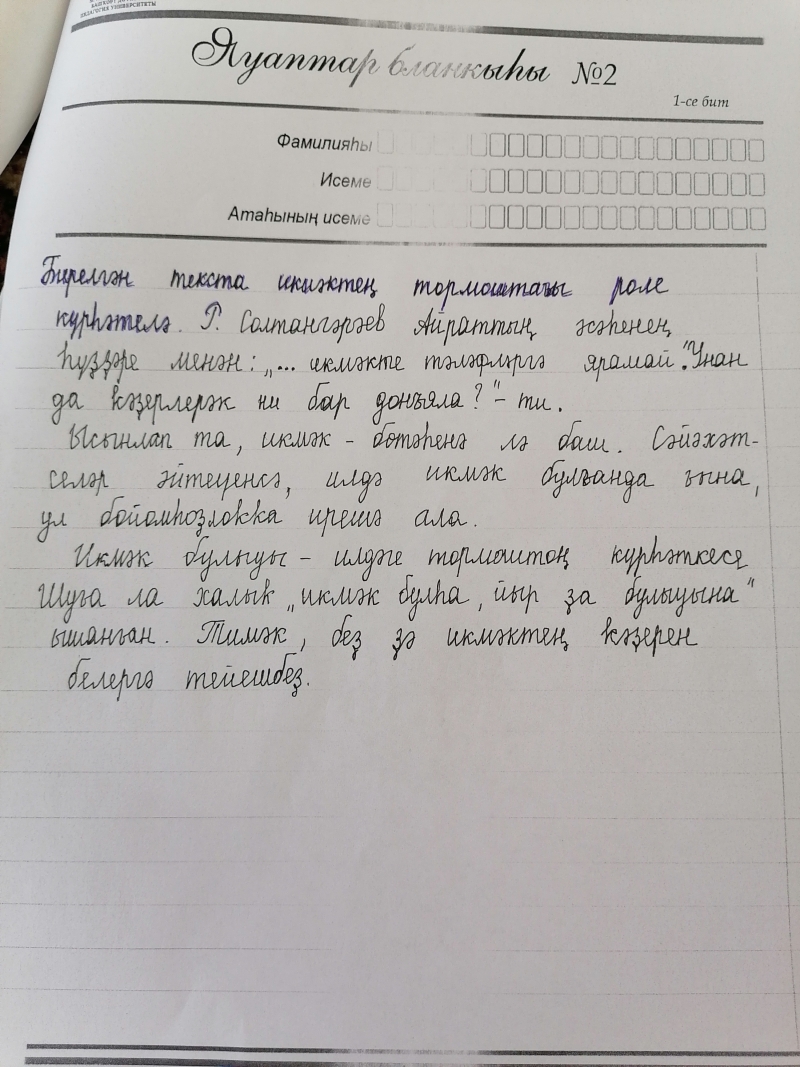 ПЕДАГОГИЯ УНИВЕРСИТЕТЫ
Яуаптар бланкыһы №2
1-се бит
Фамилияһы
Исеме
Атаһының исеме
Бирелгән текста икмәктең тормоштағы роле
күрһәтелә. Р. Солтангәрәев Айраттың әсәһенең
һүҙҙәре менән: „... икмәкте тәләфләргә ярамай. Унан
да кәҙерлерәк ни бар донъяла?" – ти.
Ысынлап та, икмәк – бөтәһенә лә баш. Сәйәхәт-
селәр әйтеүенсә, илдә икмәк булғанда ғына,
ул бойомһоҙлокка ирешә ала.
Икмәк булыуы – илдәге тормоштоң күрһәткесе
Шуға ла халык „икмәк булһа, йыр ҙа булыуына"
ышанған. Тимәк, беҙ ҙә икмәктең кәҙерен
белергә тейешбеҙ.